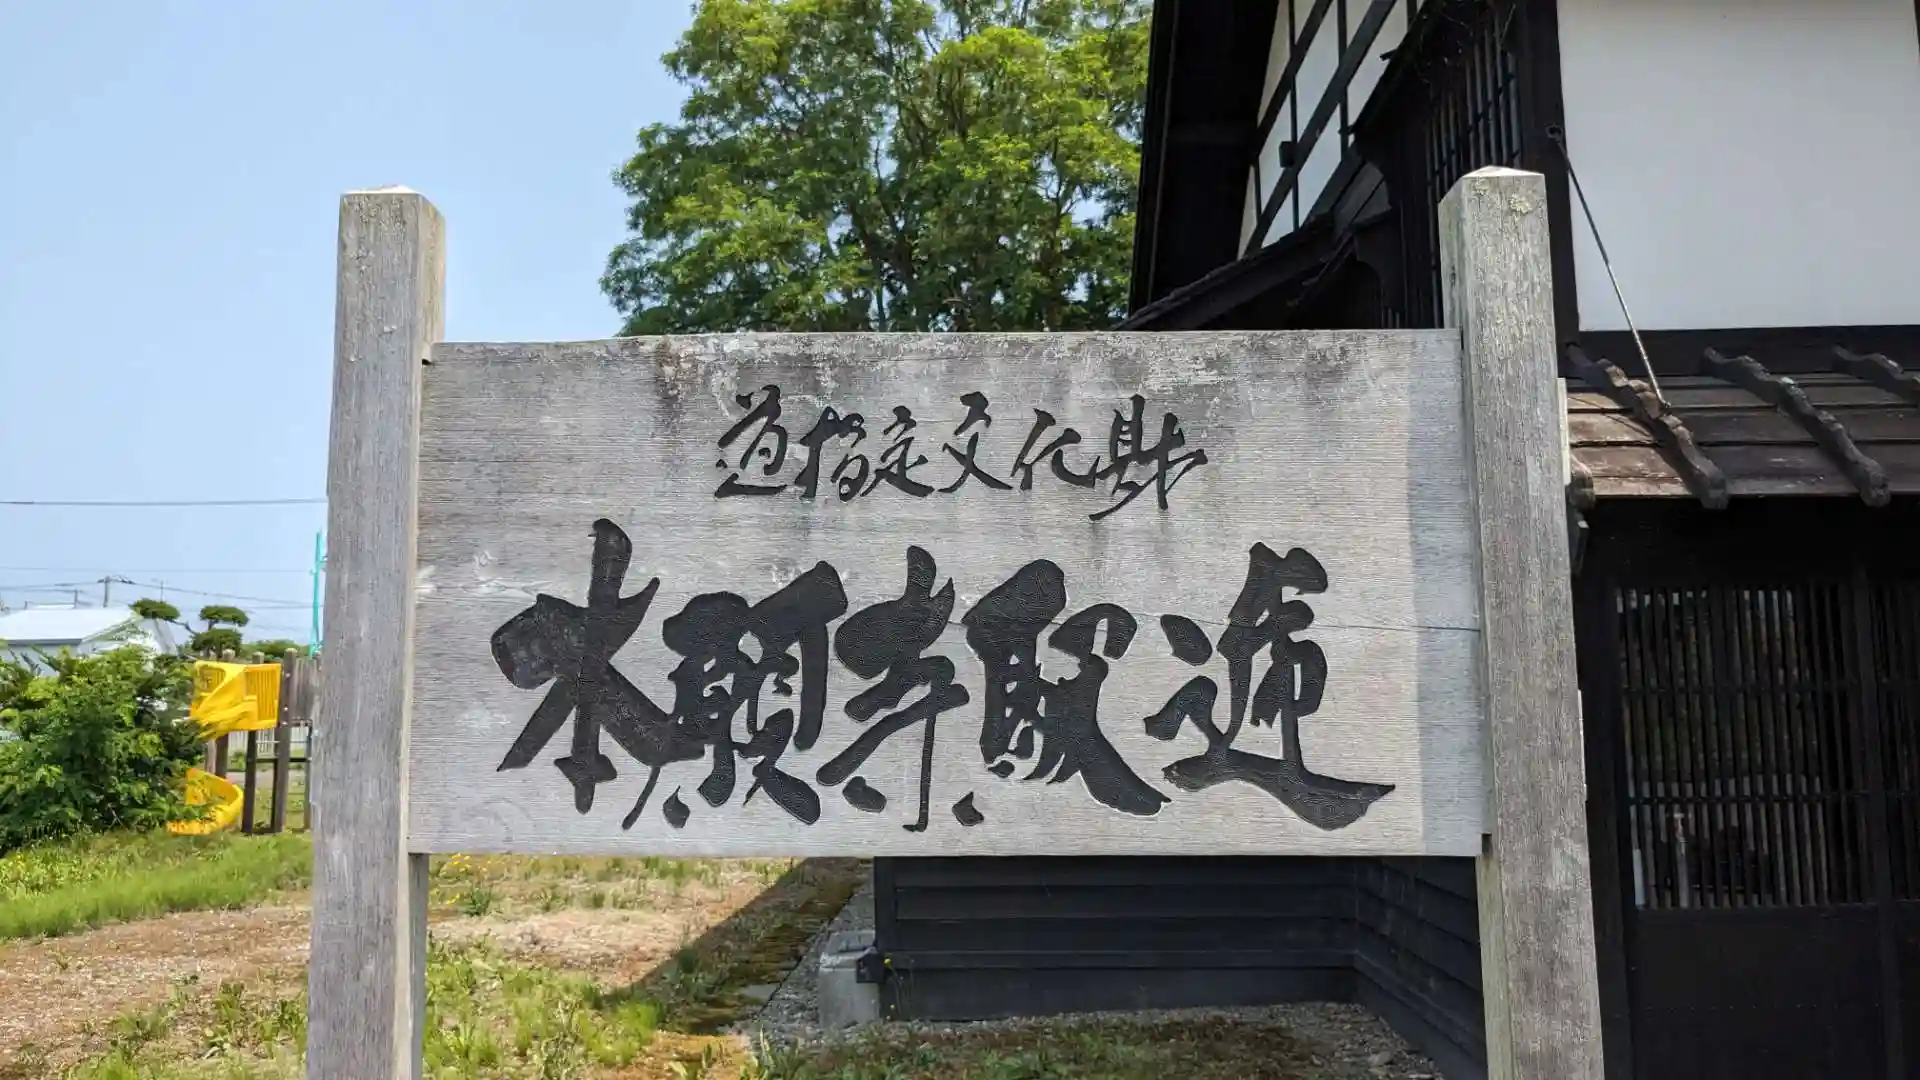 道指定文化財
本願寺駅逓